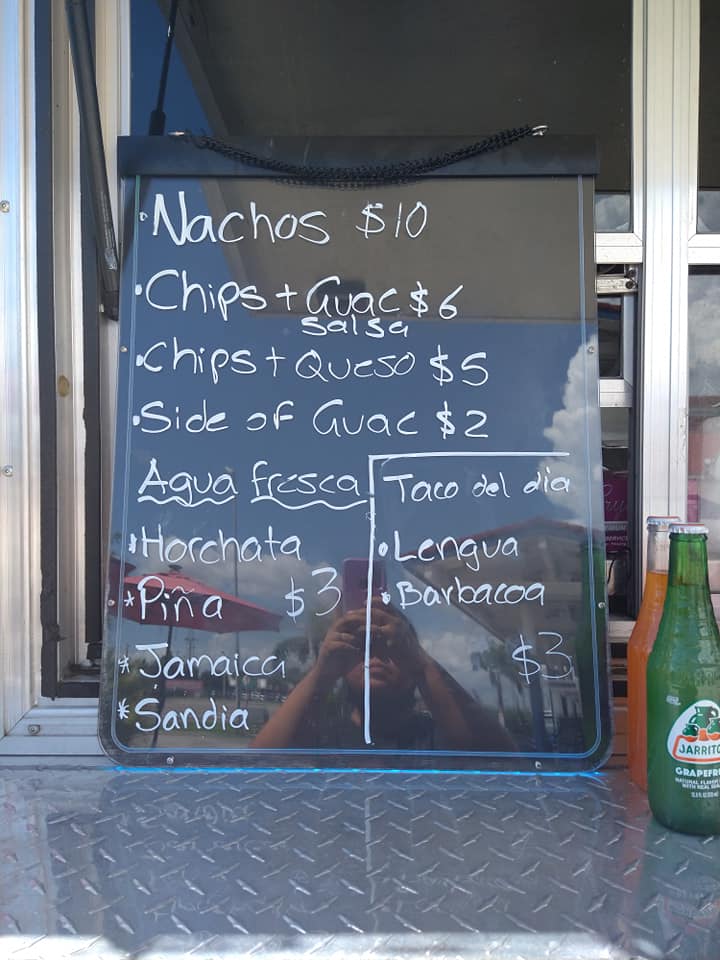 Nachos $10
Chips + Guac $6
salsa
Chips + Queso $5
Side of Guac $2
Agua fresca
Horchata
Piña $3
Jamaica
Sandia
Taco del dia
Lengua
Barbacoa
$3
JARRITO
GRAPEFR
NATURAL FLAVOR